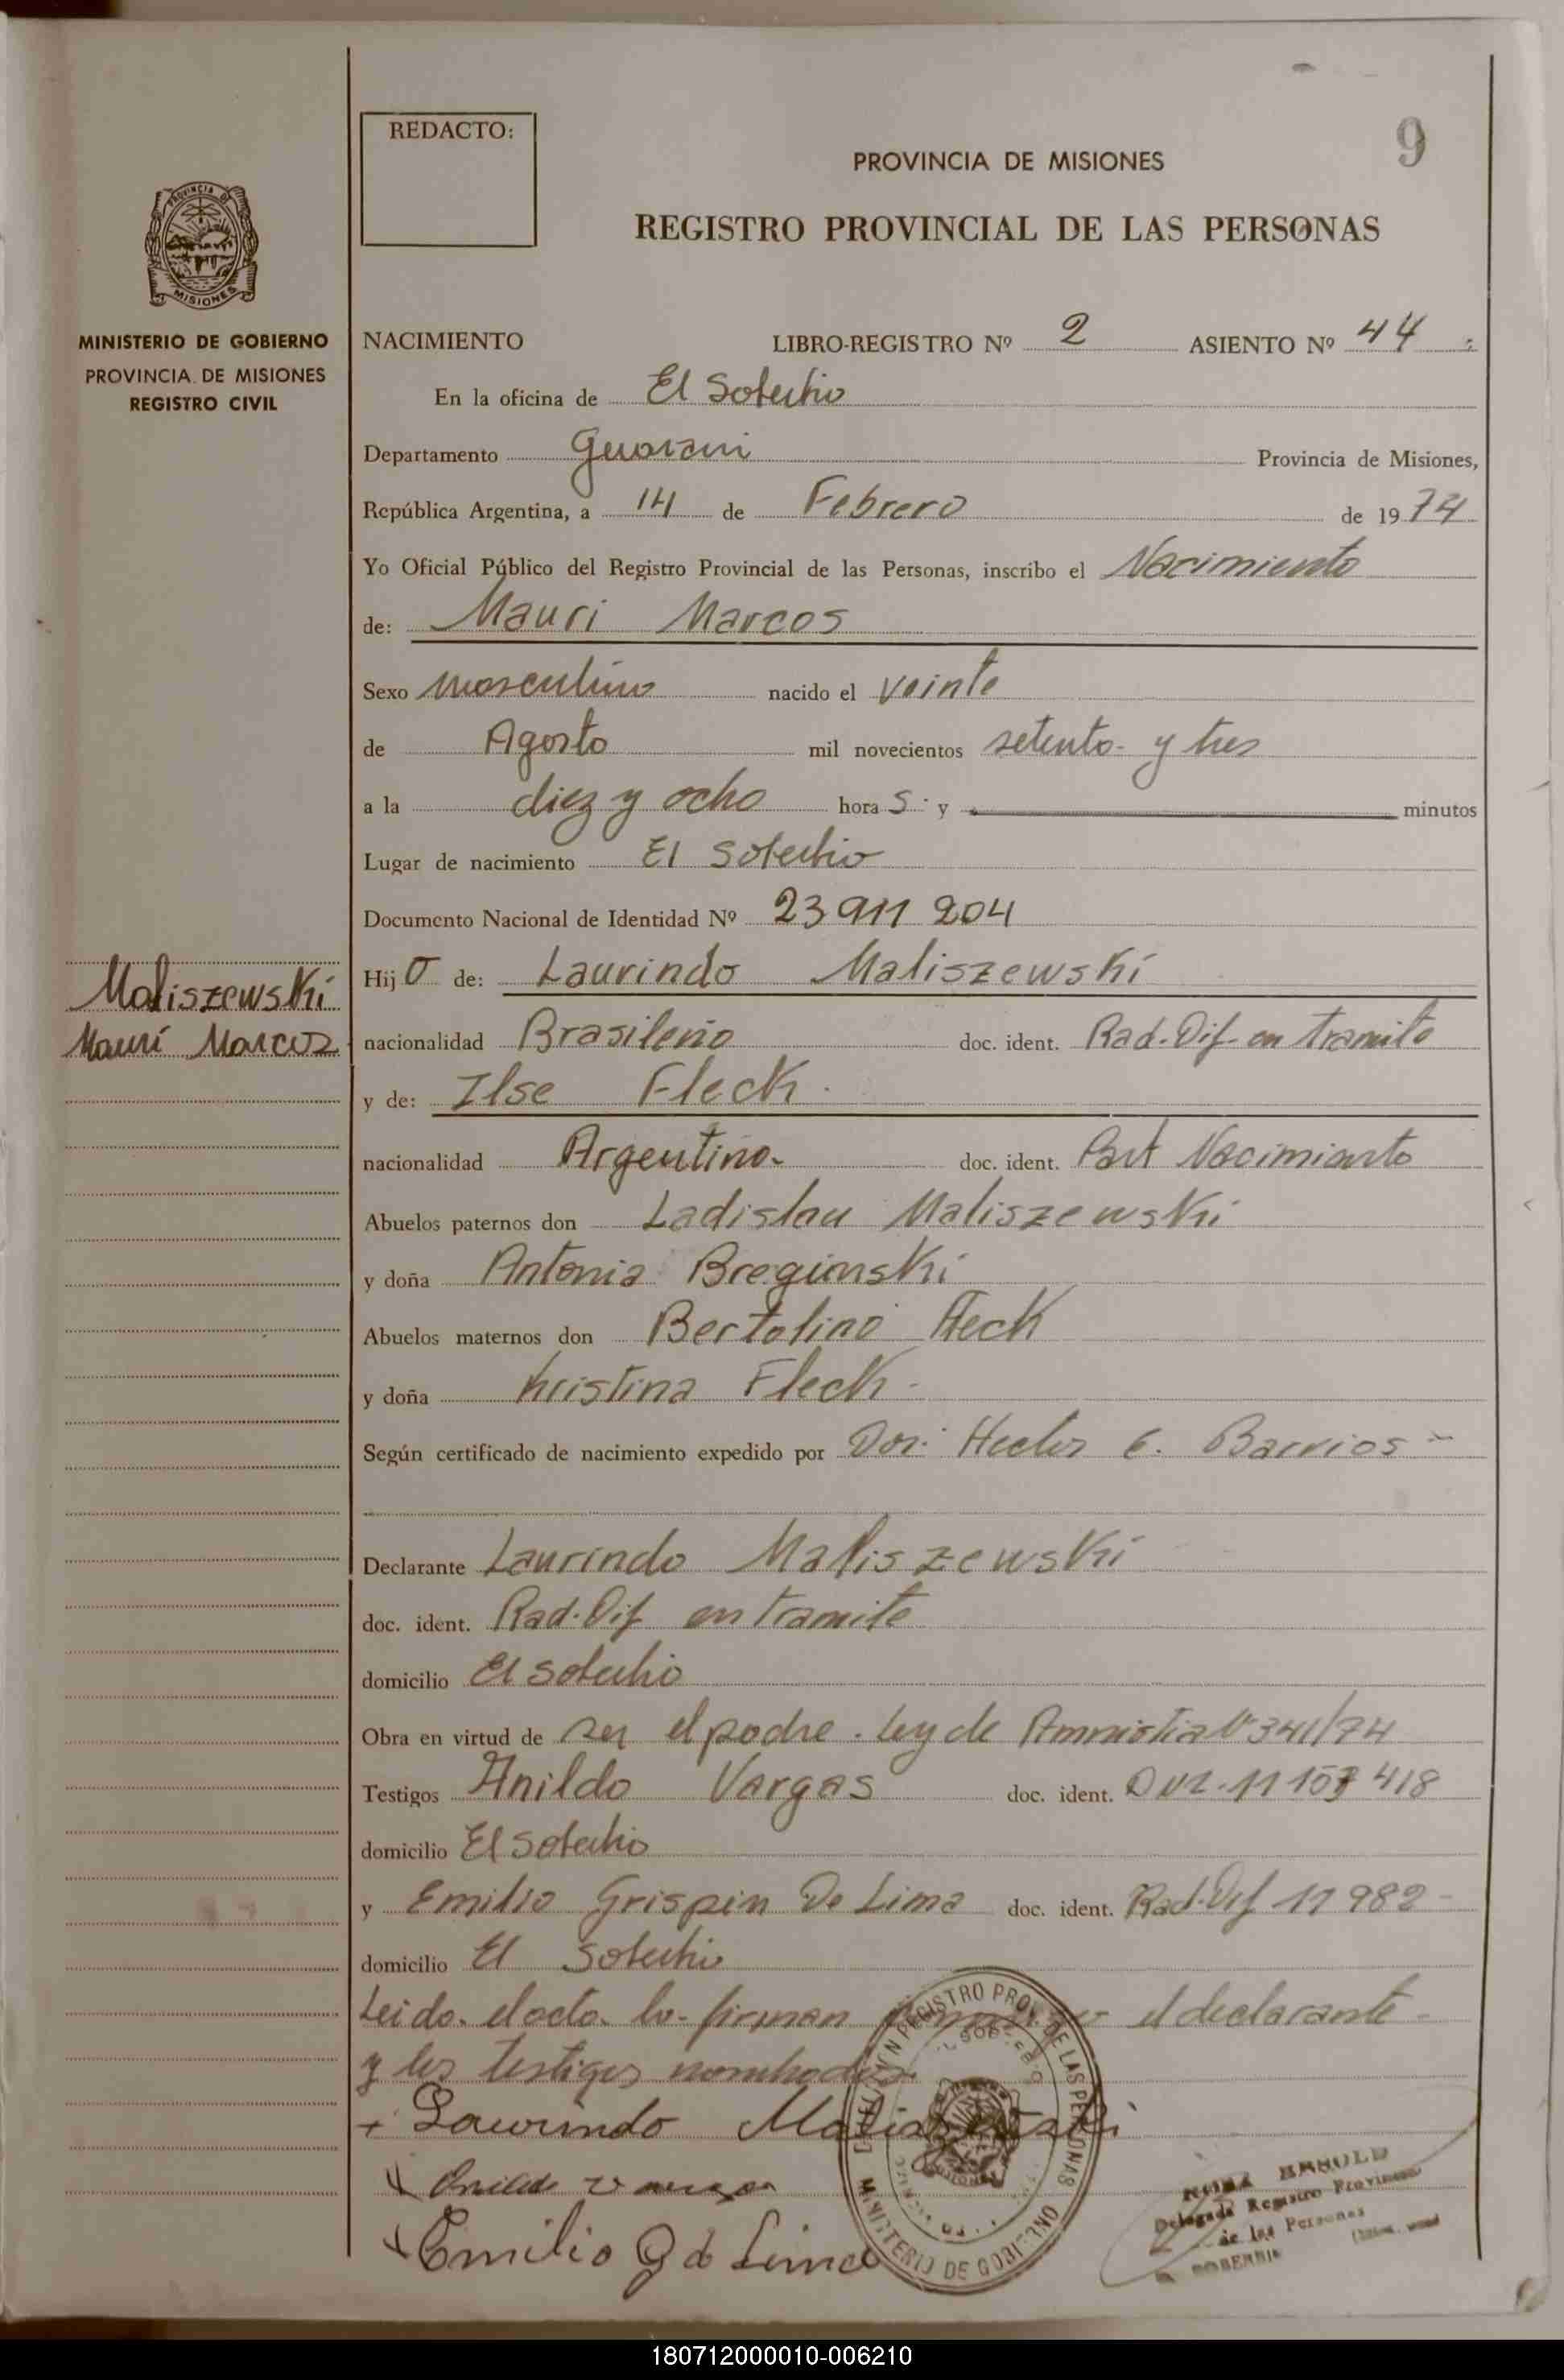 9
REDACTO:
PROVINCIA DE MISIONES
REGISTRO PROVINCIAL DE LAS PERSONAS
PROVINCIA DE
MISIONES
MINISTERIO DE GOBIERNO
PROVINCIA DE MISIONES
REGISTRO CIVIL
NACIMIENTO LIBRO-REGISTRO Nº 2 ASIENTO Nº 44
En la oficina de El Soberbio
Departamento Guarani Provincia de Misiones,
República Argentina, a 14 de Febrero de 1974
Yo Oficial Público del Registro Provincial de las Personas, inscribo el Nacimiento
de: Mauri Marcos
Sexo masculino nacido el veinte
de Agosto mil novecientos setenta y tres
a la diez y ocho hora s y minutos
Lugar de nacimiento El Soberbio
Documento Nacional de Identidad Nº 23 911 204
Maliszewski
Mauri Marcos
Hijo de: Laurindo Maliszewski
nacionalidad Brasileño doc. ident. Rad. Dif. en tramite
y de: Ilse Fleck.
nacionalidad Argentina. doc. ident. Part Nacimiento
Abuelos paternos don Ladislau Maliszewski
y doña Antonia Breginski
Abuelos maternos don Bertolino Fleck
y doña Kristina Fleck.
Según certificado de nacimiento expedido por Dor. Hector E. Barrios
Declarante Laurindo Maliszewski
doc. ident. Rad. Dif en tramite
domicilio El Soberbio
Obra en virtud de ser el padre. Ley de Amnistia Nº 341/74
Testigos Anildo Vargas doc. ident. DNI. 11 157 418
domicilio El Soberbio
y Emilio Grispin De Lima doc. ident. Rad. Dif 11 982
domicilio El Soberbio
Leido el acta lo firman el declarante
y los testigos nombrados
Laurindo Maliszewski
Anildo Vargas
Emilio G d Lima
REGISTRO PROV. DE LAS PERSONAS
MINISTERIO DE GOBIERNO
ARNOLD
Delegada Registro Provincial
de las Personas
180712000010-006210